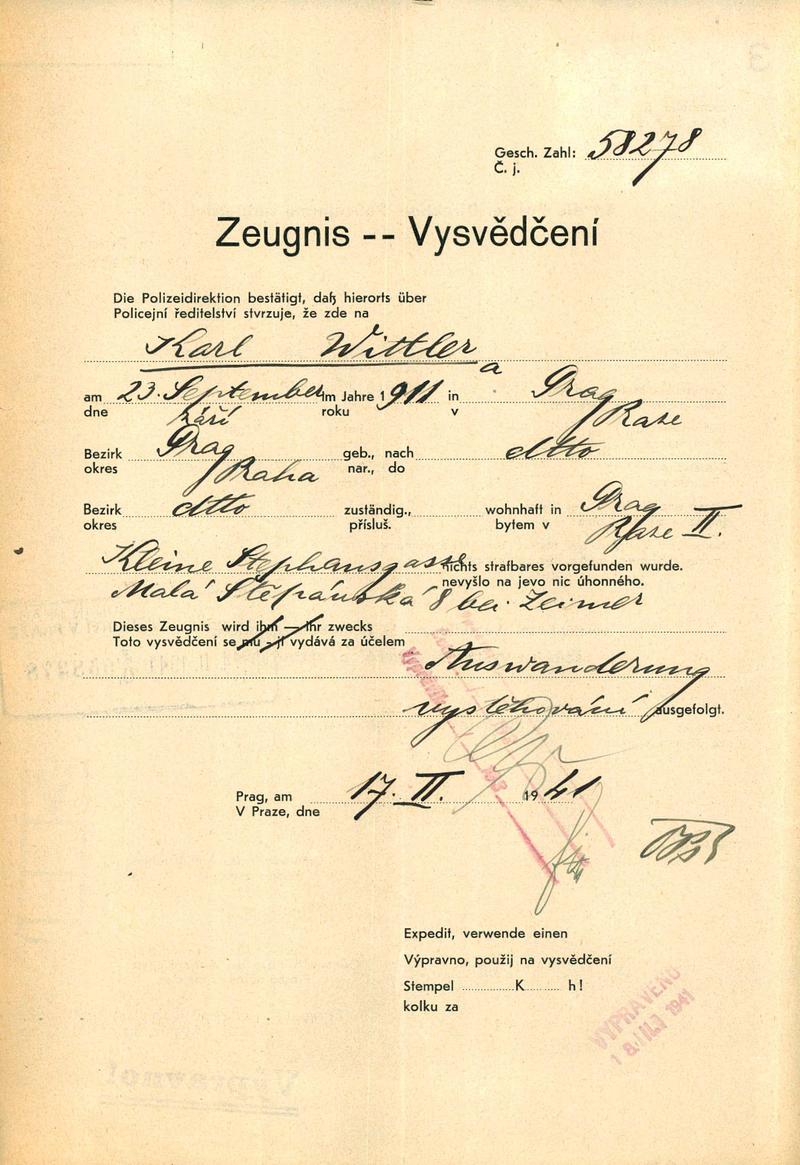 Gesch. Zahl: 58278
Č. j.
Zeugnis -- Vysvědčení
Die Polizeidirektion bestätigt, daß hierorts über
Policejní ředitelství stvrzuje, že zde na
Karl Wittler a
am 23. September im Jahre 1911 in Prag
dne září roku v Praze
Bezirk Prag geb., nach dtto
okres Praha nar., do
Bezirk dtto zuständig., wohnhaft in Prag
okres přísluš. bytem v Praze II.
Kleine Stephansgasse nichts strafbares vorgefunden wurde.
nevyšlo na jevo nic úhonného.
Malá Štěpánská 8 bei Zeimer
Dieses Zeugnis wird ihm — ihr zwecks
Toto vysvědčení se mu - jí vydává za účelem
Auswanderung
vystěhování ausgefolgt.
Prag, am 17. II. 1941
V Praze, dne
Expedit, verwende einen
Výpravno, použij na vysvědčení
Stempel K h!
kolku za
VYPRAVENO
18. II. 1941